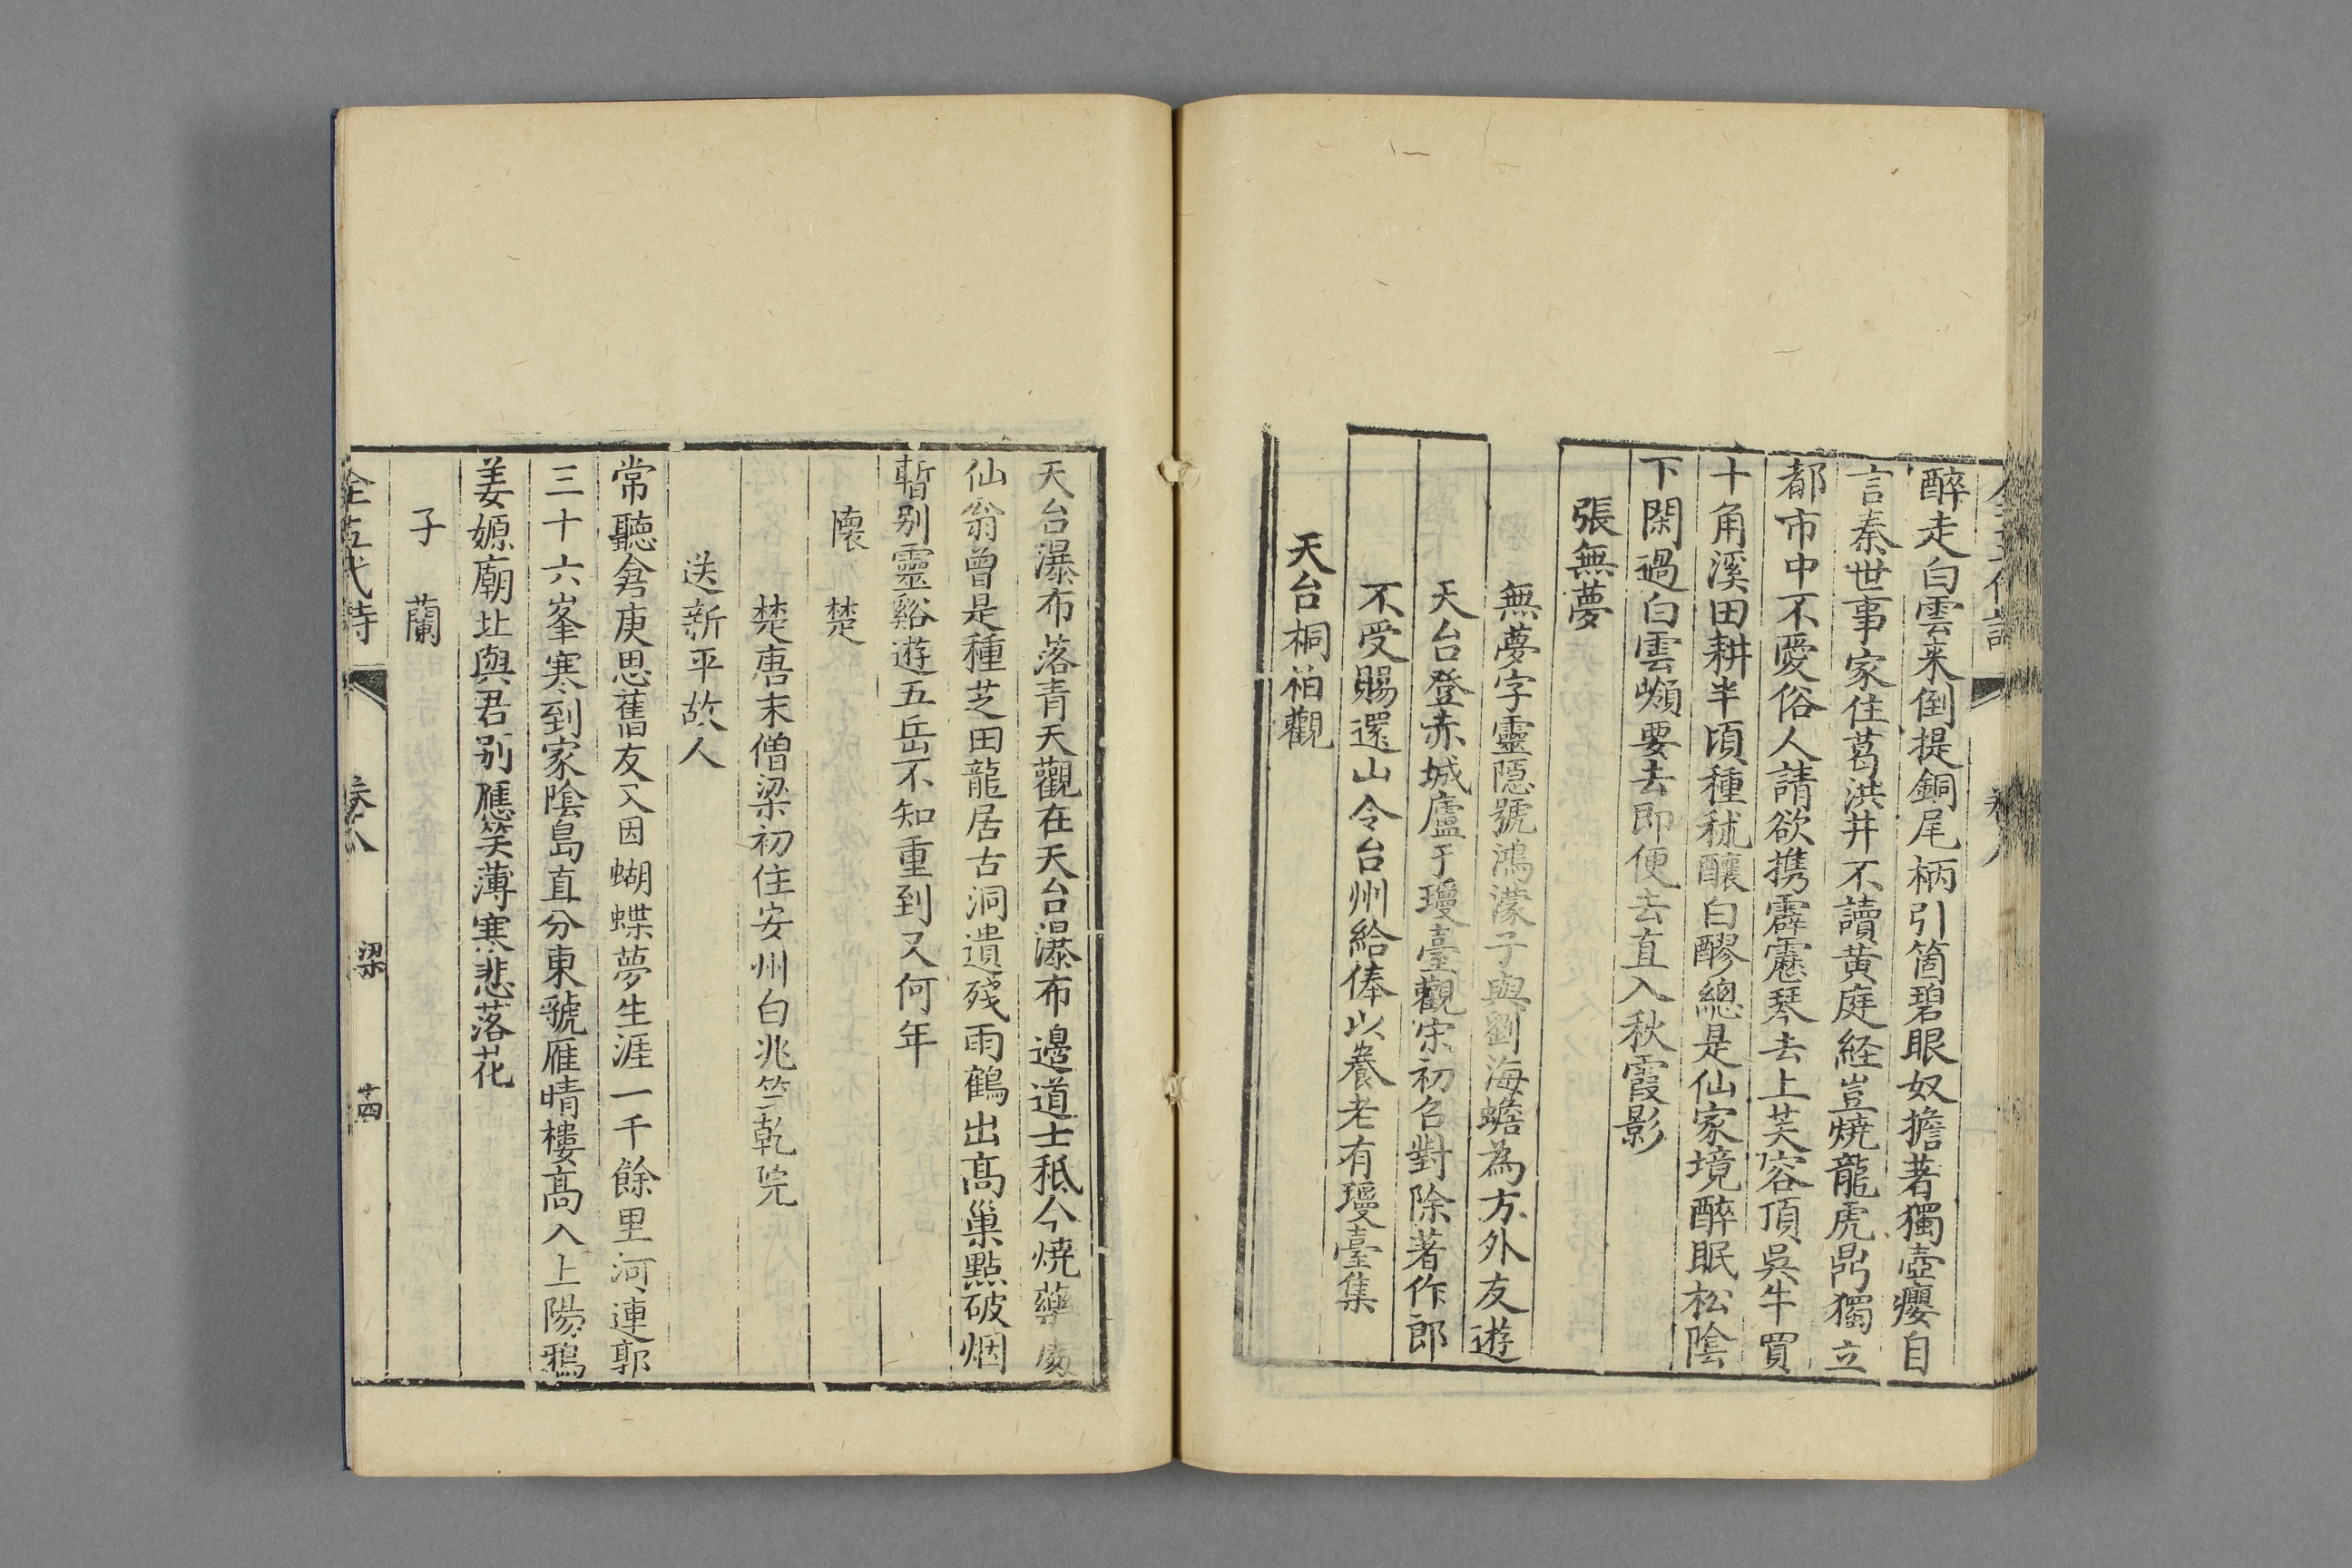 醉走白雲来倒提銅尾柄引箇碧眼奴擔著獨壺癭自
言秦世事家住葛洪井不讀黄庭経豈燒龍虎鼎獨立
都市中不愛俗人請欲携霹靂琴去上芙容頂吳牛買
十角溪田耕半頃種秫釀白醪總是仙家境醉眠松陰
下閑過白雲嶺要去即便去直入秋霞影
張無夢
無夢字靈隱號鴻濛子與劉海蟾為方外友遊
天台登赤城廬于瓊臺觀宋初召對除著作郎
不受賜還山令台州給俸以養老有瓊臺集
天台桐柏觀
天台瀑布落青天觀在天台瀑布邊道士秪今燒藥處
仙翁曾是種芝田龍居古洞遺殘雨鶴出髙巢點破烟
暫别靈谿遊五岳不知重到又何年
懷楚
楚唐末僧梁初住安州白兆竺乾院
送新平故人
常聽倉庚思舊友又因蝴蝶夢生涯一千餘里河連郭
三十六峯寒到家陰島直分東虢雁晴樓髙入上陽鴉
姜嫄廟北與君别應笑薄寒悲落花
子蘭
全五代詩 卷八 梁 十四